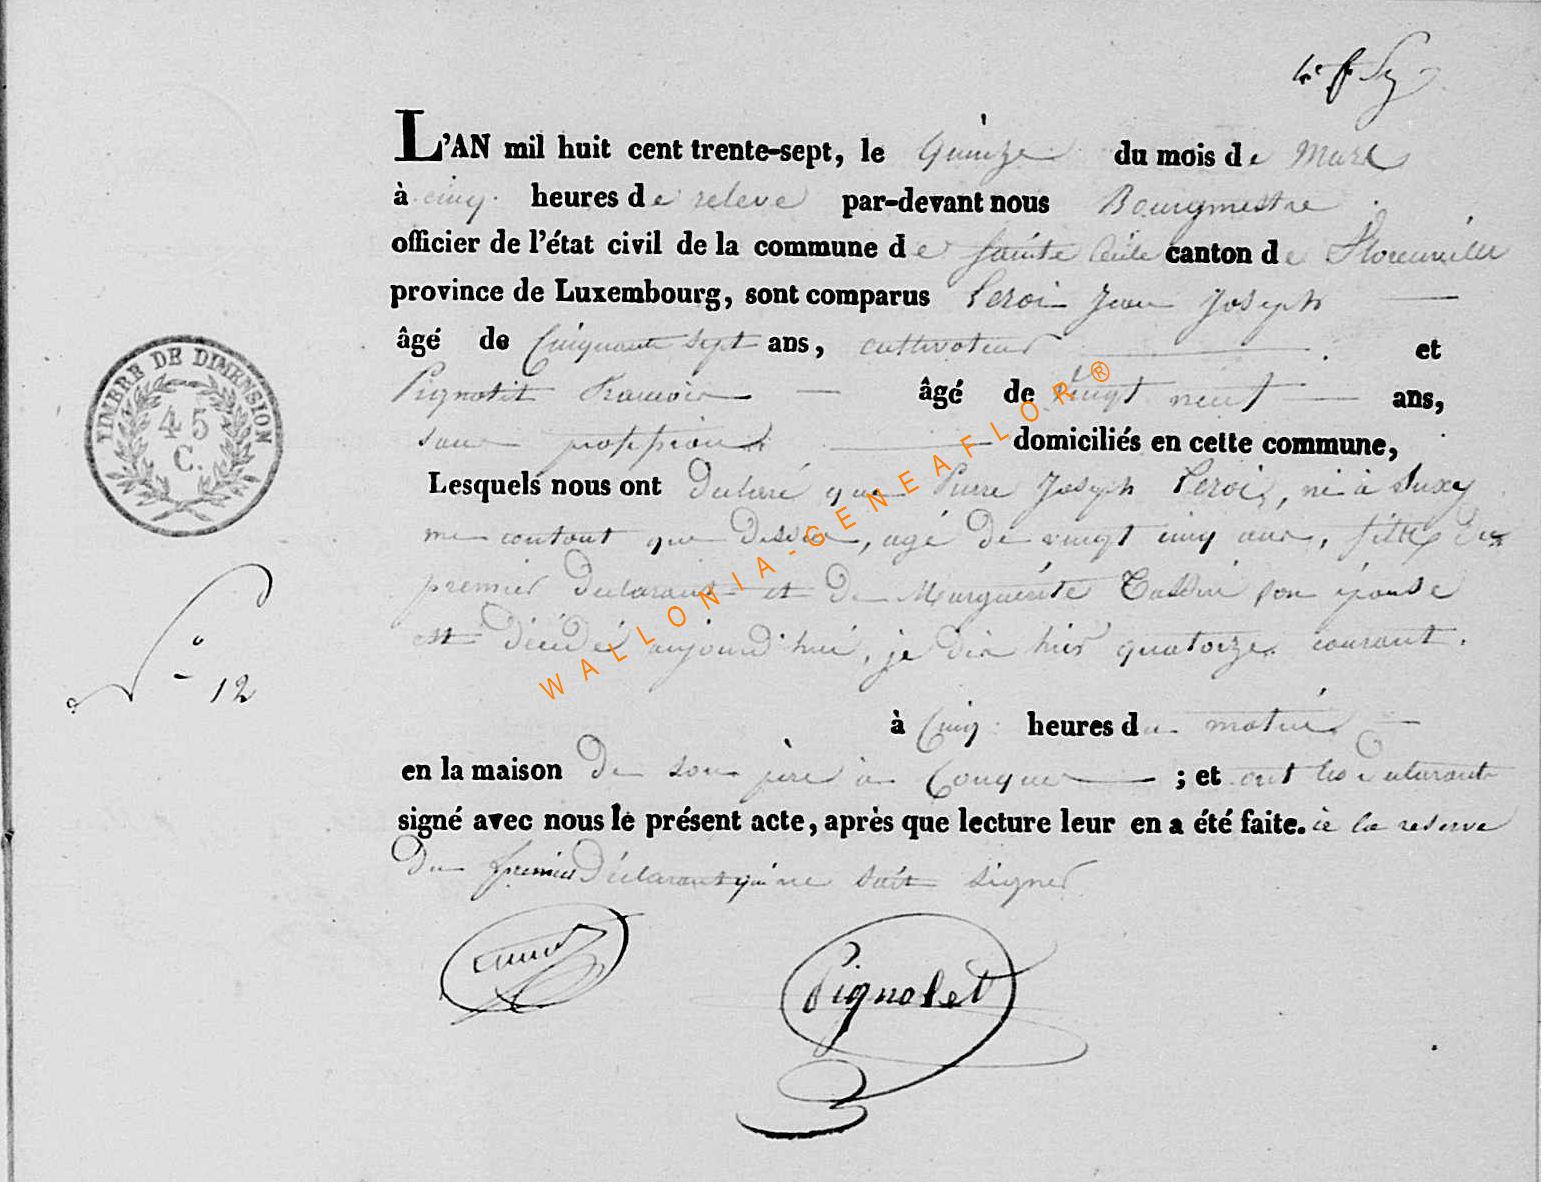 L'AN mil huit cent trente-sept, le quinze du mois de Mars
à cinq heures de relevé par-devant nous Bourgmestre
officier de l'état civil de la commune de Sainte Cécile canton de Florenville
province de Luxembourg, sont comparus Leroi Jean Joseph
âgé de Cinquante sept ans, cultivateur et
Pignolet François âgé de vingt neuf ans,
sans profession domiciliés en cette commune,
Lesquels nous ont declaré que Pierre Joseph Leroi, né à Suxy
que Dessus, agé de vingt cinq ans, fils du
premier declarant et de Marguerite son épouse
est décédé aujourd'hui, je dis hier quatorze courant.
à Cinq heures du matin
en la maison de son père à Conques ; et ont les declarants
signé avec nous le présent acte, après que lecture leur en a été faite. à la reserve
du premier Déclarant qui ne sait signer
Pignolet
TIMBRE DE DIMENSION
45
C.
N° 12
WALLONIA-GENEAFLOR®